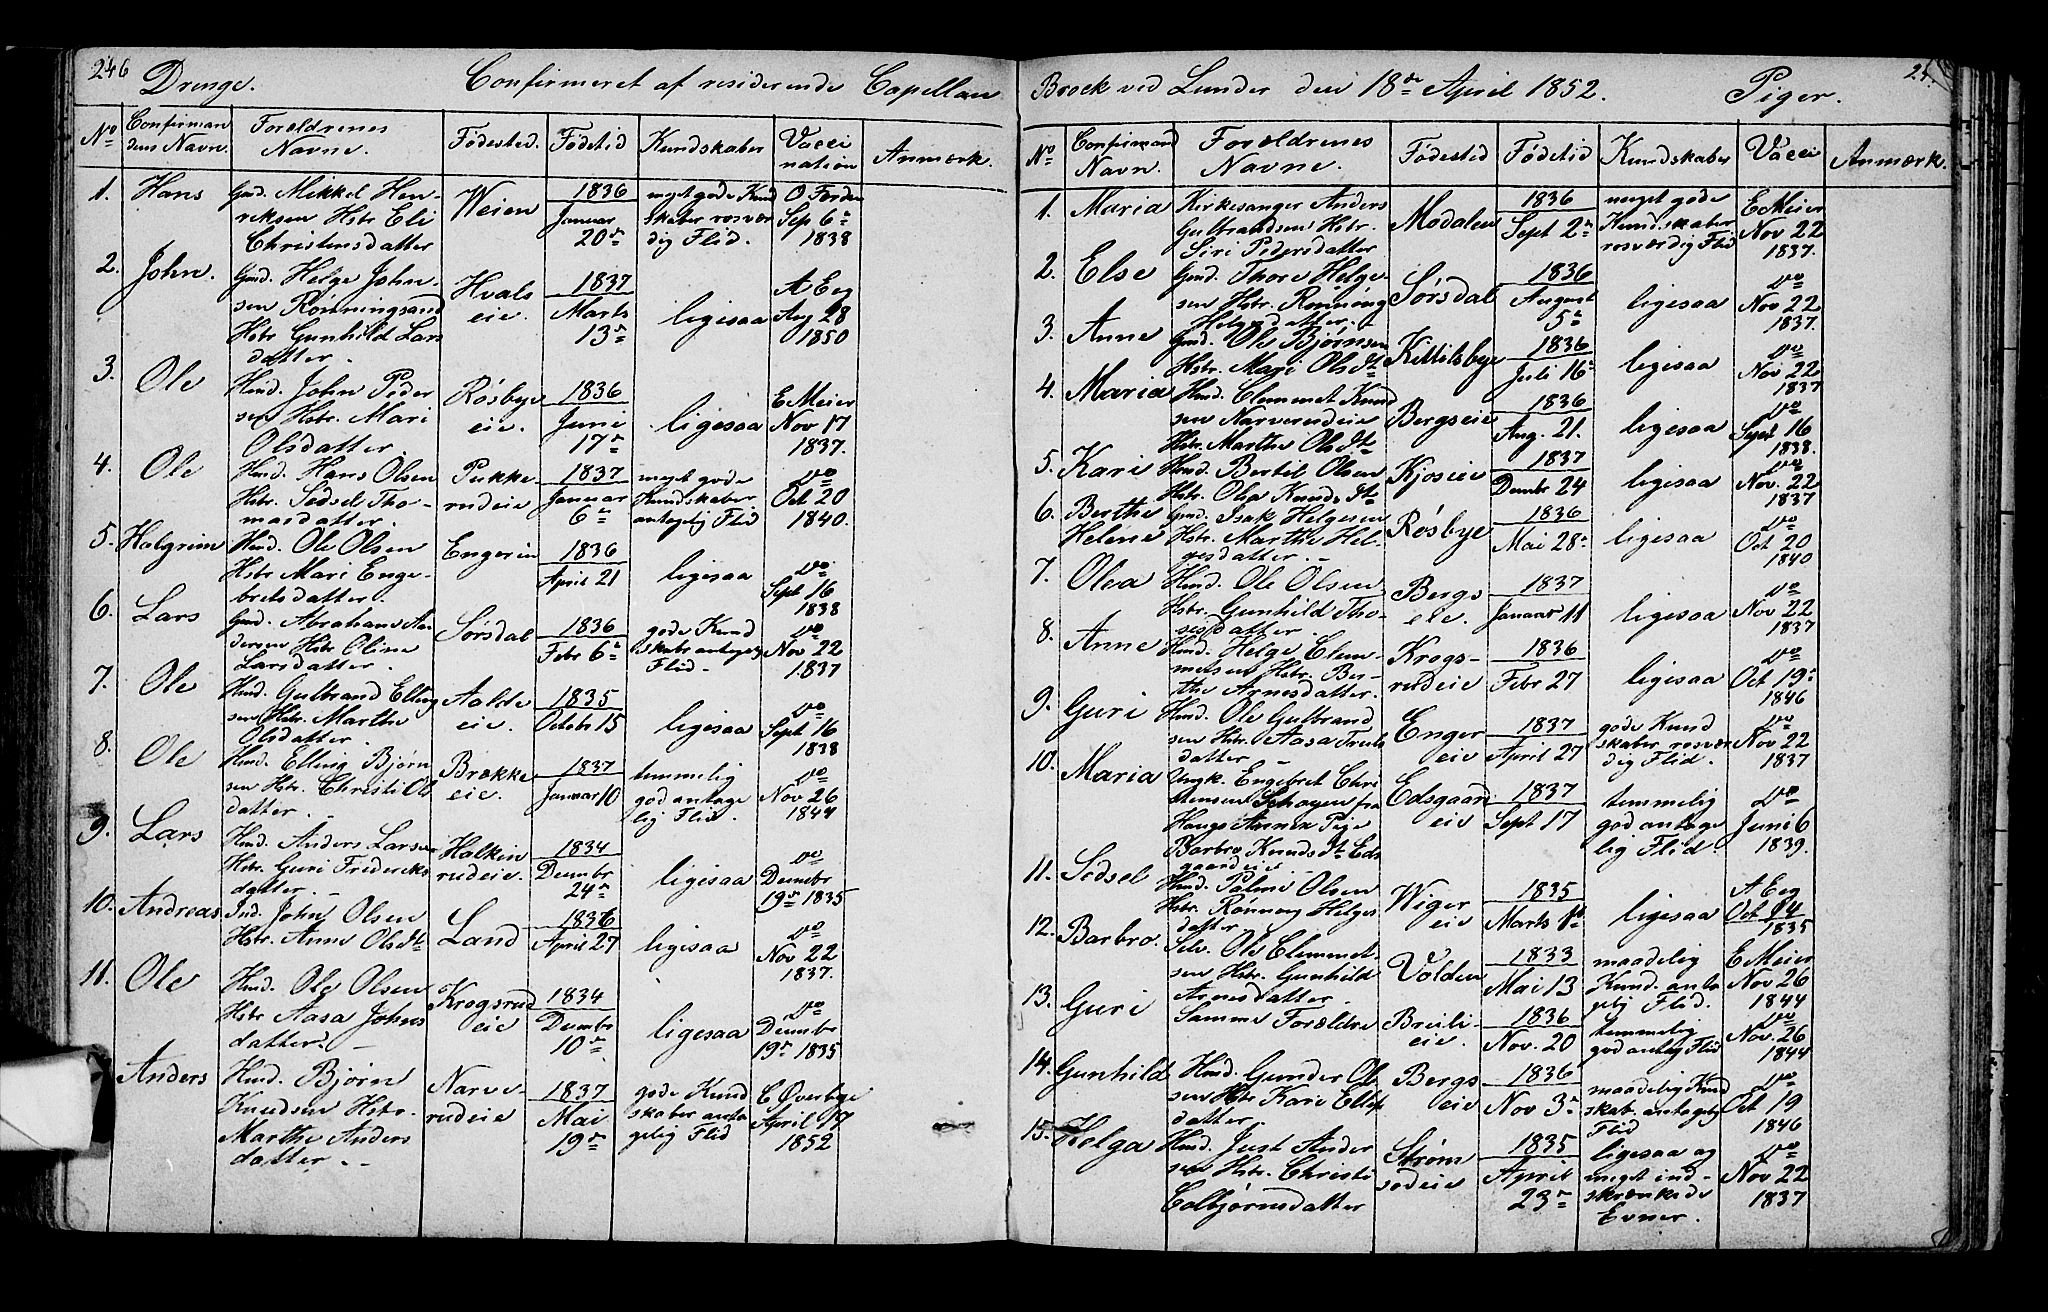 246
Drenge. Confirmeret af residerende Capellan
No
Confirman
dens Navn.
Forældrenes
Navne.
Fødested.
Fødetid
Kundskaber
Vacci
nation
Anmærk.
1. Hans
Gmd. Mikkel Hen-
riksen Hstr Eli
Christensdatter
Weien
1836
Januar
20de
meget gode Kund
skaber rosvær
dig Flid.
Sep 6te
1838
2. John.
Gmd. Helge John-
sen Rønningsand
Hstr Gunhild Lars
datter.
Hvals
eie.
1837
Marts
13de
ligesaa
A Eeg
Aug 28
1850
3. Ole
Hmd. John Peder
sen Hstr. Mari
Olsdatter.
Røsbye
eie.
1836
Juni
17de
ligesaa
E Meier
Nov 17
1837.
4. Ole
Hmd. Hans Olsen
Hstr. Sedsel Tho-
masdatter.
Pukke-
rudeie
1837
Januar
6te
meget gode
Kundskaber
antagelig Flid
do
Oct 20
1840.
5. Halgrim
Hmd. Ole Olsen
Hstr Mari Enge-
bretsdatter.
Engerin
1836
April 21
ligesaa
do
Sept 16
1838
6. Lars
Gmd. Abraham An-
dersen Hstr Oline
Larsdatter.
Sørsdal
1836
Febr 6te
gode Kund
skaber antagelig
Flid-
do
Nov 22
1837
7. Ole
Hmd. Gulbrand Elling
sen Hstr. Marthe
Olsdatter.
Aalde
eie.
1835
Octobr 15
ligesaa
do
Sept 16
1838
8. Ole
Hmd. Elling Bjørn
sen Hstr. Christi Ols
datter.
Brække
eie.
1837
Januar 10
temmelig
god antage
lig Flid.
do
Nov 26
1844
9. Lars
Hmd. Anders Larsen
Hstr. Guri Frederiks
datter.-
Halkin
rudeie.
1834
Decmbr
24de
ligesaa
do
Decmbr
19de 1835
10. Andreas
Ind. John Olsen
Hstr. Anne Olsdtr
Land
1836
April 27
ligesaa
do
Nov 22
1837.
11. Ole
Hmd. Ole Olsen
Hstr Aasa Johns
datter.-
Krogsrud
eie
1834
Decmbr
10de
ligesaa
do
Decmbr
19de 1835
Anders
Hmd. Bjørn
Knudsen Hstr.
Marthe Anders
datter.-
Narve-
rudeie
1837
Mai
19de
gode Kund
skaber anta
gelig Flid
C Øverbye
April 17
1852
Brock ved Lunder den 18de April 1852. Piger.
24
No
Confirmand
Navn.
Forældrenes
Navne.
Fødested
Fødetid
Kundskaber
Vacci
Anmærk.
1. Maria
Kirkesanger Anders
Gulbrandsen Hstr.
Siri Pedersdatter
Modalen
1836
Sept 2de
meget gode
Kundskaber
rosværdig Flid
E Meier
Nov 22
1837.
2. Else
Gmd. Thore Helge-
sen Hstr. Rønnong
Helgesdatter.
Sørsdal
1836
August
5te
ligesaa
do
Nov 22
1837.
3. Anne
Gmd. Ole Bjørnsen
Hstr. Mari Olsdtr
Kittilsbye
1836
Juli 16de
ligesaa
do
Nov 22
1837
4. Maria
Hmd. Clemmet Knud
sen Narverudeie
Hstr. Marthe Olsdtr
Bergseie
1836
Aug. 21.
ligesaa
do
Sept 16
1838.
5. Kari
Hmd. Bertel Olsen
Hstr. Olea Knudsdtr
Kjoseie
1837
Decmbr 24
ligesaa
do
Nov. 22
1837
6. Berthe
Helene
Gmd. Isak Helgesen
Hstr. Marthe Hel-
gesdatter.-
Røsbye
1836
Mai 28de
ligesaa
do
Oct 20
1840
7. Olea
Hmd. Ole Olsen
Hstr. Gunhild Tho-
sesdatter.
Bergs
eie.
1837
Januar 11
ligesaa
do
Nov 22
1837
8. Anne
Hmd. Helge Clem-
metsen Hstr. Ber-
the Arnesdatter.
Krogs-
rudeie
1836
Febr 27
ligesaa
do
Oct 19de
1846
9. Guri
Hmd. Ole Gulbrand
sen Hstr. Aasa Truls
datter -
Enger
eie
1837
April 27
gode Kund
skaber rosvær
dig Flid.-
do
Nov 22
1837
10. Maria
Ungk. Engebret Chri
stensen Schøyen fra
Hougs Annex Pige
Barbro Knudsdtr Eds
gaardeie.
Edsgaard
eie
1837
Sept 17
temmelig
god antage
lig Flid.
do
Juni 6
1839.
11. Sedsel
Hmd. Palme Olsen
Hstr. Rønnong Helges
datter
Wiger
eie
1835
Marts 1ste
ligesaa
A Eeg
Oct 14
1835
12. Barbro.
Selv. Ole Clemmet-
sen Hstr. Gunhild
Arnesdatter.
Volden
1833
Mai 13
maadelig
Kund. anta
gelig Flid.
E Meier
Nov 26
1844
13. Guri
Samme Forældre
Breili-
eie
1836
Nov. 20
temmelig
god antag Flid
do
Nov. 26
1844
14. Gunhild
Hmd. Gunder Ol
sen Hstr Kari Ellefs
datter.
Bergs
eie
1836
Nov 3de
maadelig Kund
skab. antagelig
Flid
do
Oct 19
1846
15. Helga
Hmd. Just Ander
sen Hstr. Christi
Colbjørnsdatter
Strøm
sodeie
1835
April
23de
ligesaa og
meget ind-
skrænkede
Evner.
do
Nov 22
1837